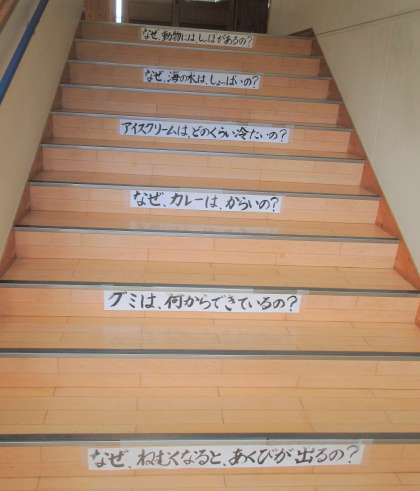 なぜ、動物には、しっぽがあるの？
なぜ、海の水は、しょっぱいの？
アイスクリームは、どのくらい冷たいの？
なぜ、カレーは、からいの？
グミは、何からできているの？
なぜ、ねむくなると、あくびが出るの？